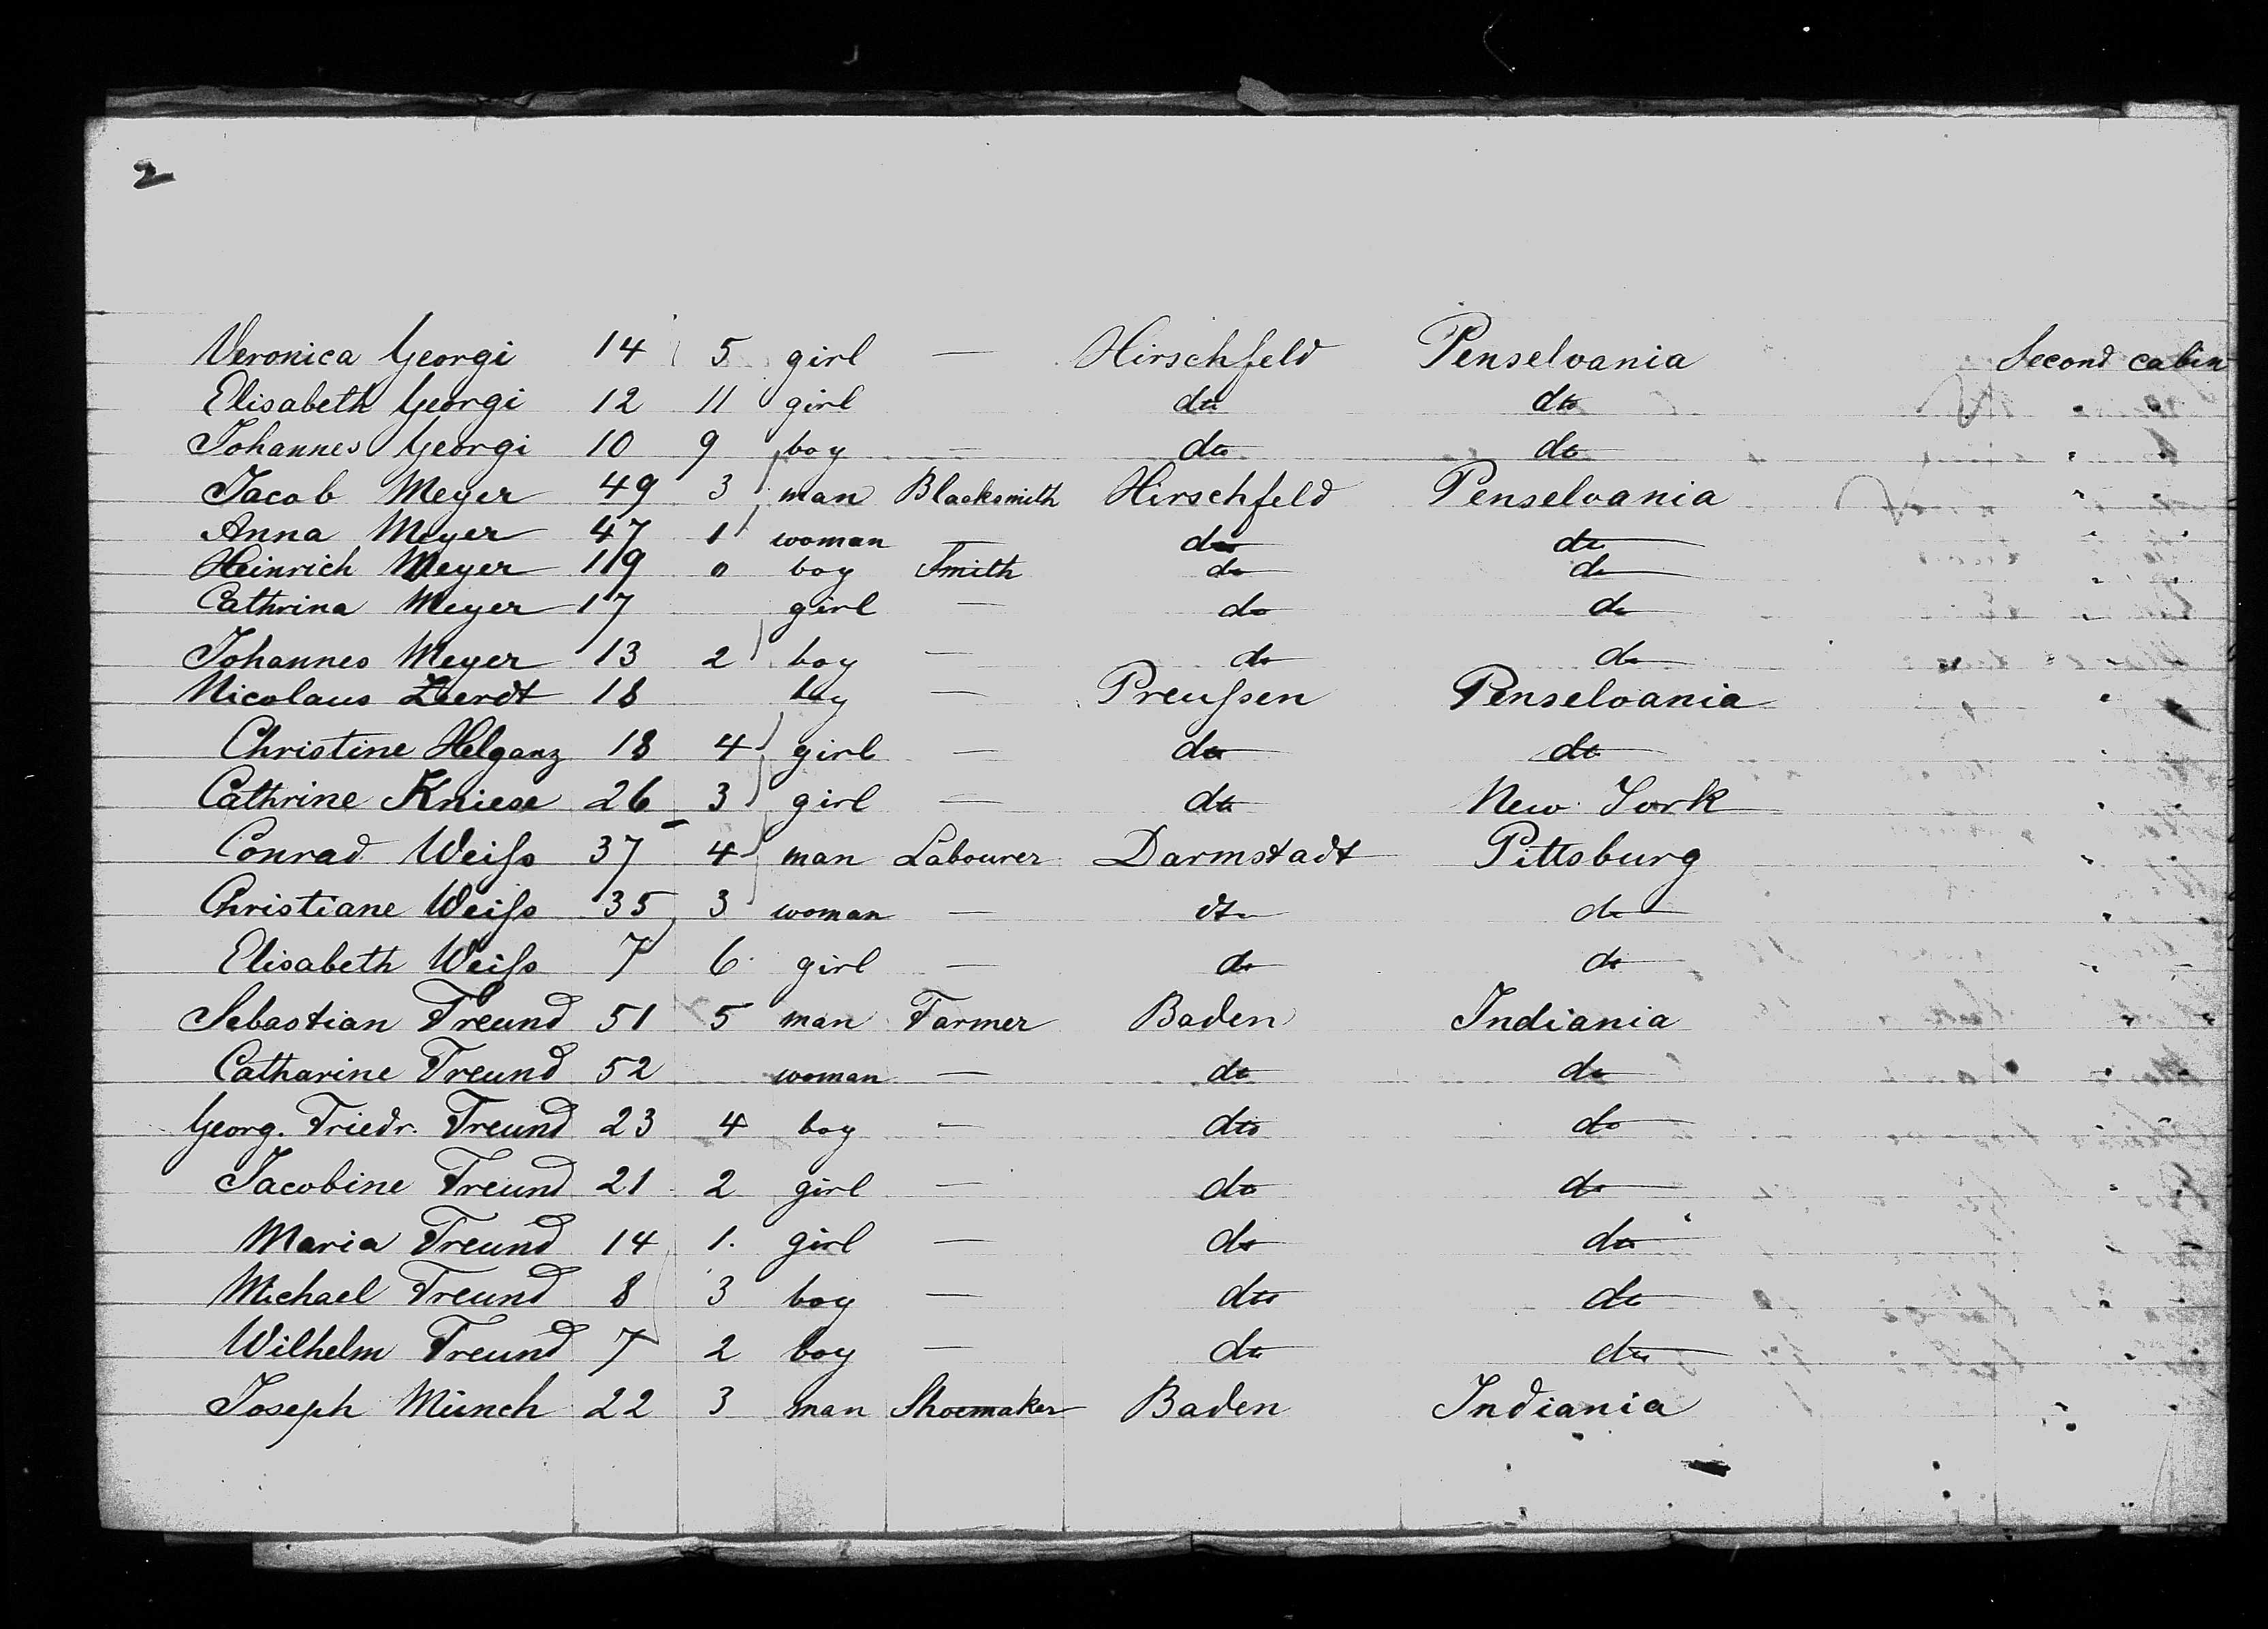 2
Veronica Georgi 14 5 girl — Hirschfeld Penselvania Second cabin
Elisabeth Georgi 12 11 girl dto dto " "
Johannes Georgi 10 9 boy — do do " "
Jacob Meyer 49 3 man Blacksmith Hirschfeld Penselvania " "
Anna Meyer 47 1 woman — do do " "
Heinrich Meyer 19 " boy Smith do do " "
Cathrina Meyer 17 girl — do do " "
Johannes Meyer 13 2 boy — do do " "
Nicolaus 18 boy — Preußen Penselvania "
Christine Helganz 18 4 girl — do do " "
Cathrine Kniese 26 3 girl — do New York " "
Conrad Weiß 37 4 man Labourer Darmstadt Pittsburg " "
Christiane Weiß 35 3 woman — dto do " "
Elisabeth Weiß 7 6 girl — do do " "
Sebastian Freund 51 5 man Farmer Baden Indiania " "
Catharine Freund 52 woman — do do " "
Georg. Friedr. Freund 23 4 boy — dto do " "
Jacobine Freund 21 2 girl — do do " "
Maria Freund 14 1. girl — do do " "
Michael Freund 8 3 boy — dto do " "
Wilhelm Freund 7 2 boy — do do " "
Joseph Münch 22 3 man Shoemaker Baden Indiania " "